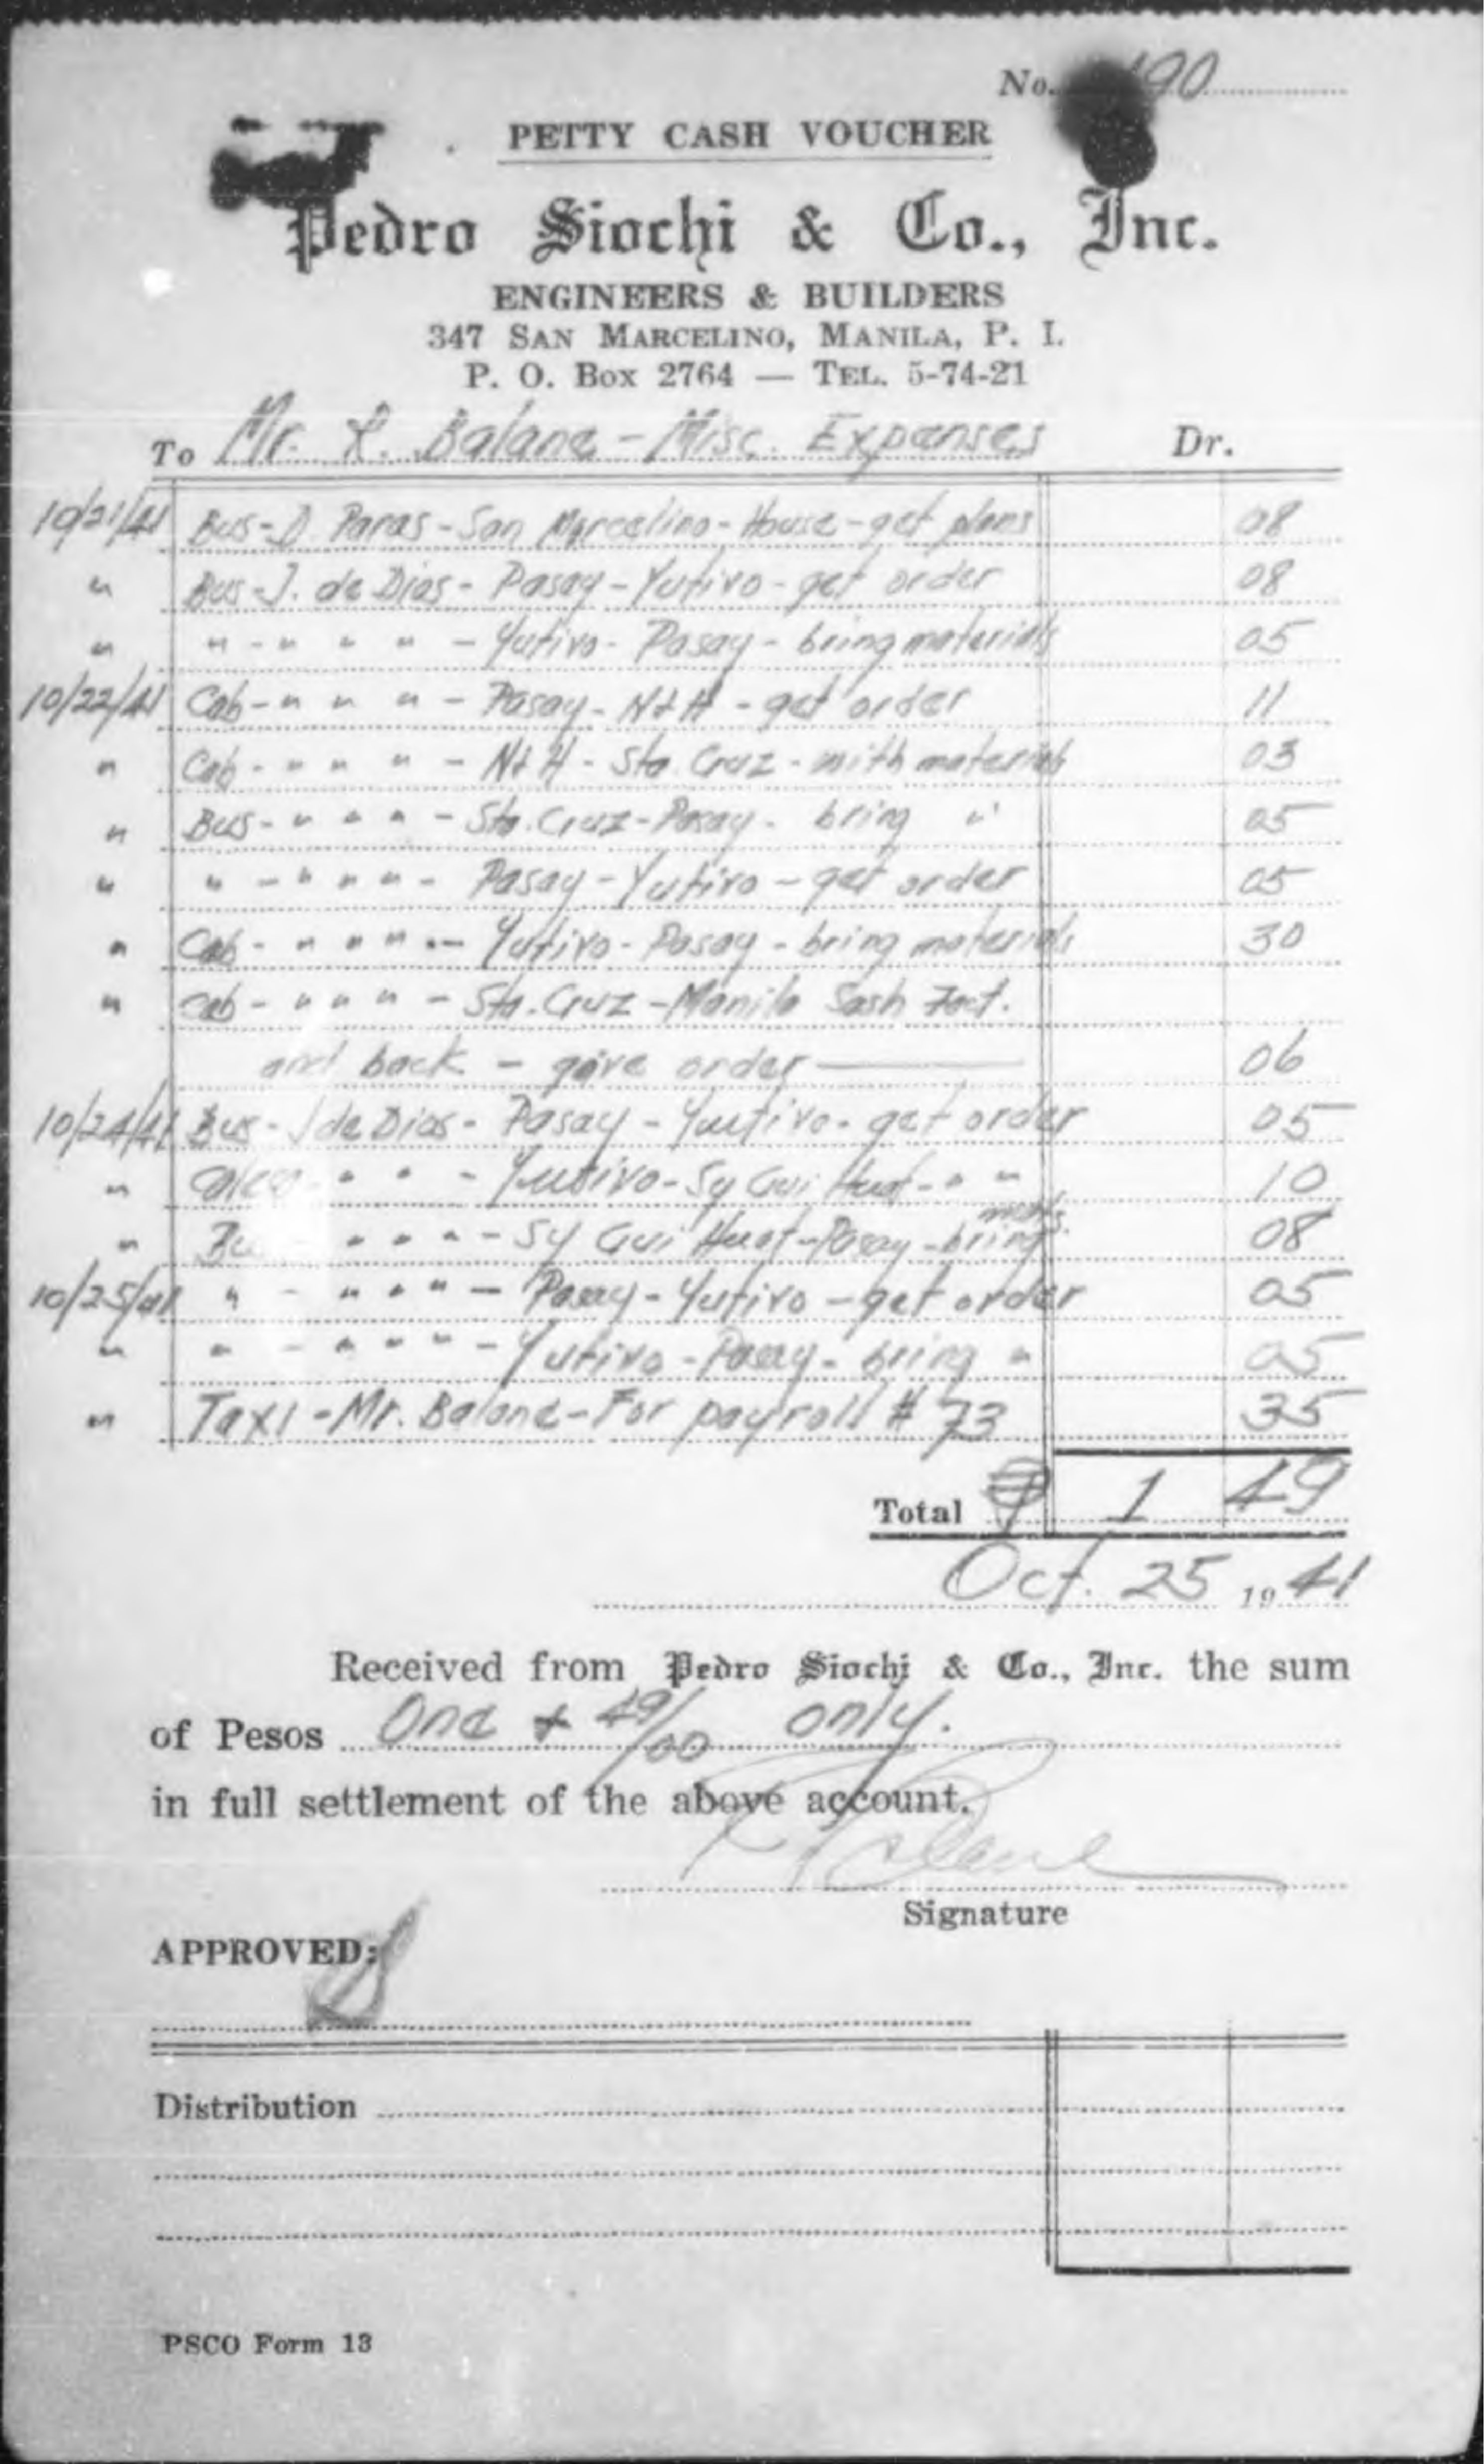 No. 190
PETTY CASH VOUCHER
Pedro Siochi & Co., Inc.
ENGINEERS & BUILDERS
347 SAN MARCELINO, MANILA, P. I.
P. O. Box 2764 — TEL. 5-74-21
To Mr. L. Balane - Misc. Expenses Dr.
10/21/41 Bus - D. Paras - San Marcelino - House - get plans 08
" Bus - J. de Dios - Pasay - Yutivo - get order 08
" " - " " " - Yutivo - Pasay - bring materials 05
10/22/41 Cab - " " " - Pasay - N & H - get order 11
" Cab - " " " - N & H - Sta. Cruz - with materials 03
" Bus - " " " - Sta. Cruz - Pasay - bring " 05
" " - " " " - Pasay - Yutivo - get order 05
" Cab - " " " - Yutivo - Pasay - bring materials 30
" Cab - " " " - Sta. Cruz - Manila Sash Fact.
and back - give order 06
10/24/41 Bus - J de Dios - Pasay - Yutivo - get order 05
" " " - Yutivo - Sy Gui Huat - " " 10
" " " " - Sy Gui Huat - Pasay - bring mats. 08
10/25/41 " - " " " - Pasay - Yutivo - get order 05
" " - " " " - Yutivo - Pasay - bring " 05
" Taxi - Mr. Balane - For payroll # 73 35
Total ₱ 1 49
Oct. 25 1941
Received from Pedro Siochi & Co., Inc. the sum
of Pesos One + 49/00 only.
in full settlement of the above account.
Signature
APPROVED:
Distribution
PSCO Form 13